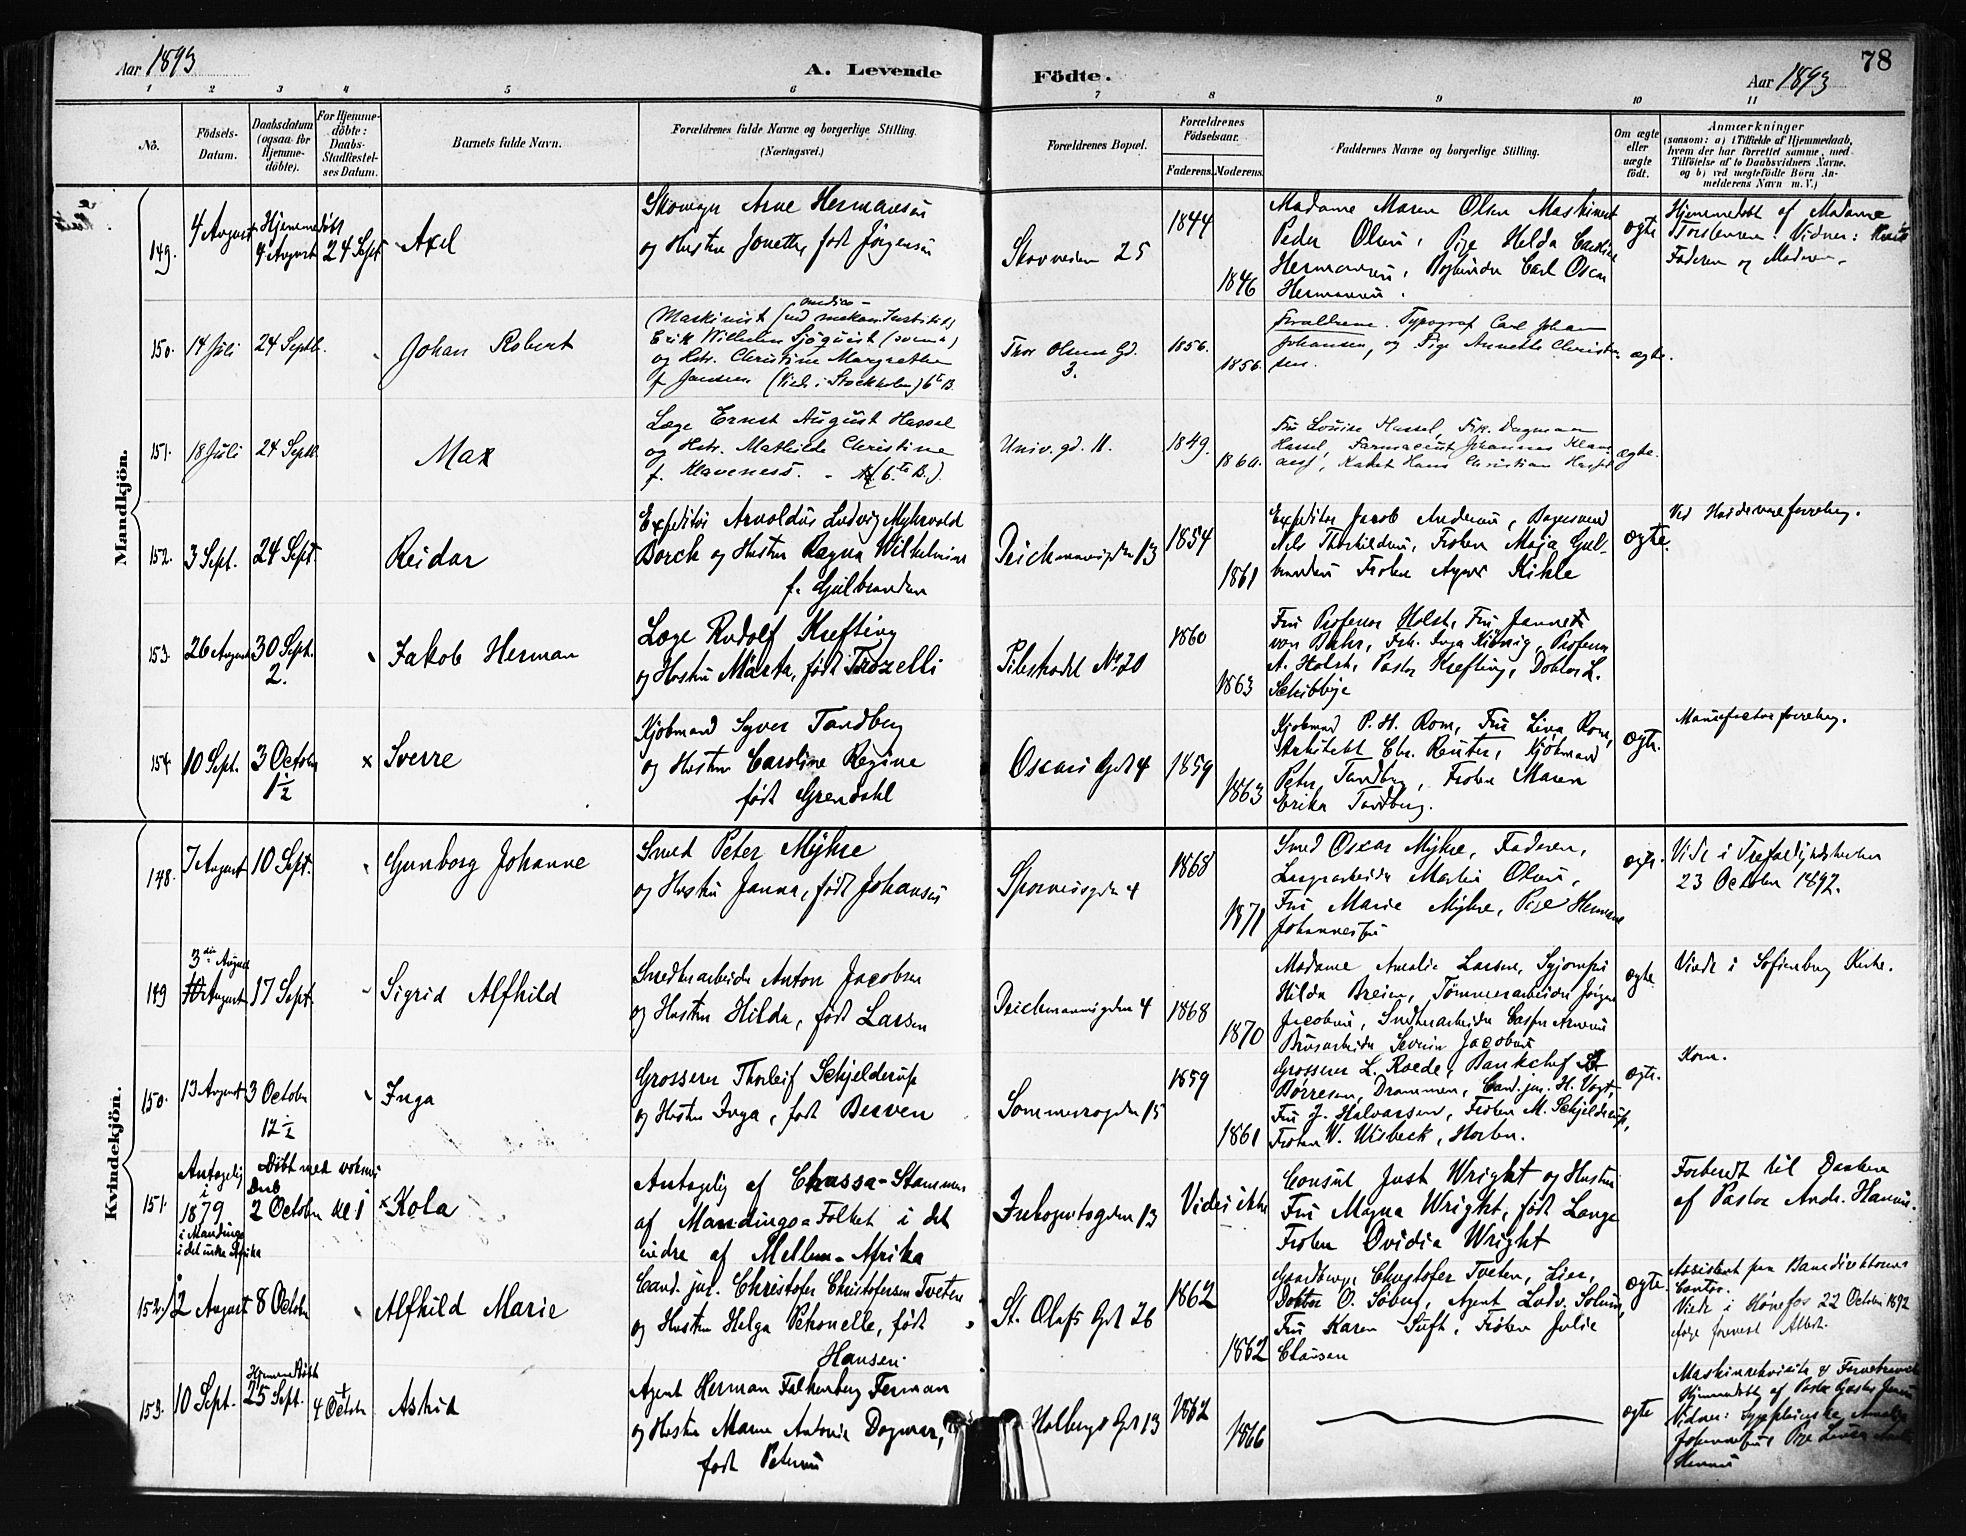 Aar 1893
A. Levende
Födte.
Aar 1893
78
1 2 3 4 5 6 7 8 9 10 11
No.
Födsels-
Datum.
Daabsdatum
(ogsaa for
Hjemme-
döbte).
For Hjemme-
döbte:
Daabs-
Stadfæstel-
ses Datum.
Barnets fulde Navn.
Forældrenes fulde Navne og borgerlige Stilling.
(Næringsvei.)
Forældrenes Bopæl.
Forældrenes
Födselsaar.
Faderens.
Moderens.
Faddernes Navne og borgerlige Stilling.
Om ægte
eller
uægte
födt.
Anmærkninger
(saasom: a) i Tilfælde af Hjemmedaab,
hvem der har forrettet samme, med
Tilföielse af to Daabsvidners Navne,
og b) ved uegtefödte Börn An-
melderens Navn m. V.)
Mandkjön.
149. 4 August Hjemmedøbt
4 August 24 Sept Axel
Arne Hermansen
og Hustru Jonette, født Jørgensen
Skovveien 25
1844
1846
Madame Maren Olsen Maskinist
Peder Olsen, Pige Helda Caroline
Hermansen, Bogbinder Carl Oscar
Hermansen.
ægte
Hjemmedøbt af Madame
Torstensen. Vidner:
Faderen og Moderen.
150. 14 Juli 24 Septb. Johan Robert
Maskinist
Erik Wilhelm Sjöquist (svensk)
og Hstr. Christine Margrethe
f. Jansen (Viede i Stockholm) 6te B.
Thor Olsens Gd.
3.
1856.
1856.
Forældrene. Typograf Carl Johan
Johansen, og Pige Annette Christen-
sen.
ægte.
151. 18 Juli 24 Septb. Max
Læge Ernst August Hassel
og Hstr. Mathilde Christine
f. Klaveness. - (6te B.).
Univ. gd. 11.
1849.
1860.
Fru Louise Hassel, Frk. Dagmar
Hassel, Farmaceut Johannes Klave-
ness, Kadet Hans Christian Hassel
ægte.
152. 3 Sept. 24 Sept. Reidar
Expeditør Arnoldus Ludvig Myhrvold
Borch og Hustru Ragna Wilhelmine
f. Gulbrandsen
Deichmannsgaden 13
1854
1861
Expeditør Jacob Andersen,
Nils Thorkildsen, Frøken Maja Gul-
brandsen Frøken Kihle
ægte.
Ved
153. 26 August 30 Sept.
2. Jakob Herman
Læge Rudolf Krefting
og Hustru Märta, født Trozelli
Pilestrædet No 20
1860
1863
Fru Professor Holst, Fru Jannet
von Bahr, Frk. Inga König, Professor
A. Holst, Pastor Krefting, Doktor L.
Schibbye
154. 10 Sept. 3 October
1½ Sverre
Kjøbmand Syver Tandberg
og Hustru Caroline Regine
født Grendahl
Oscars Gd 4
1859
1863
Kjøbmand P. H. Rom, Fru Lina Rom,
Arkitekt Chr. Reuter, Kjøbmand
Peter Tandberg, Frøken Maren
Erika Tandberg.
ægte.
Manufacturforretng.
Kvindekjön.
148. 7 August 10 Sept. Gunborg Johanne
Smed Peter Myhre
og Hustru Janna, født Johansen
Sporveisgden 4
1868
1871
Smed Oscar Myhre, Faderen,
Martin Olsen,
Fru Marie Myhre, Pige
Johannessen
ægte.
Viede i Trefoldighedskirken
23 October 1892.
149 3die August
17 Sept. Sigrid Alfhild
Snedkerarbeider Anton Jacobsen
og Hustru Hilda, født Larsen
Deichmannsgden 4
1868
1870
Madame Amalie Larsen, Syjomfru
Hilda Breien, Tømmerarbeider Jørgen
Jacobsen, Snedkerarbeider Casper Arnesen
Brusarbeider Severin Jacobsen
ægte
Viede i Sofienberg Kirke.
150. 13 August 3 October
12½ Inga
Grosserer Thorleif Schjelderup
og Hustru Inga, født Berven
Sommerrogden 15
1859
1861
Grosserer L. Roede, Bankchef
Børresen, Drammen, Cand. jur. H. Vogt,
Fru J. Halvorsen, Frøken M. Schjelderup,
Frøken W. Wisbeck, Horten.
ægte.
Korn.
151. Antagelig
i
1879
i Mandingo
i det indre Afrika
Døbt med voksen
Daab
2 October Kl 1 Kola
Antagelig af Chassa-Stammen
af Mandingoa Folket i det
indre af Mellem-Afrika
Incognitogden 13
Vides ikke
Consul Just Wright og Hustru
Fru Magna Wright, født Lange
Frøken Ovidia Wright
Forberedt til Daaben
af Pastor Andr. Hansen.
152. 2 August 8 October Alfhild Marie
Cand. jur. Christofer Christofersen Tveten
og Hustru Helga Petronelle, født
Hansen.
St. Olafs Gd 26
1862
1862
Gaardbruger Christofer Tveten, Lier,
Doktor O. Søberg, Agent Ludv. Solum,
Fru Karen Tuft, Frøken Julie
Clausen
ægte
Assistent paa Banedirektørens
Contor.
Viede i Hønefos 22 October 1892
153. 10 Sept. Hjemmedøbt
25 Sept. 4 Octobr Astrid
Agent Herman Falkenberg Ferman
og Hustru Maren Antonie Dagmar,
født Petersen
Holbergs Gd 13
1862
1866
ægte
Hjemmedøbt af Pastor
Vidner: Sygepleierske
Pige